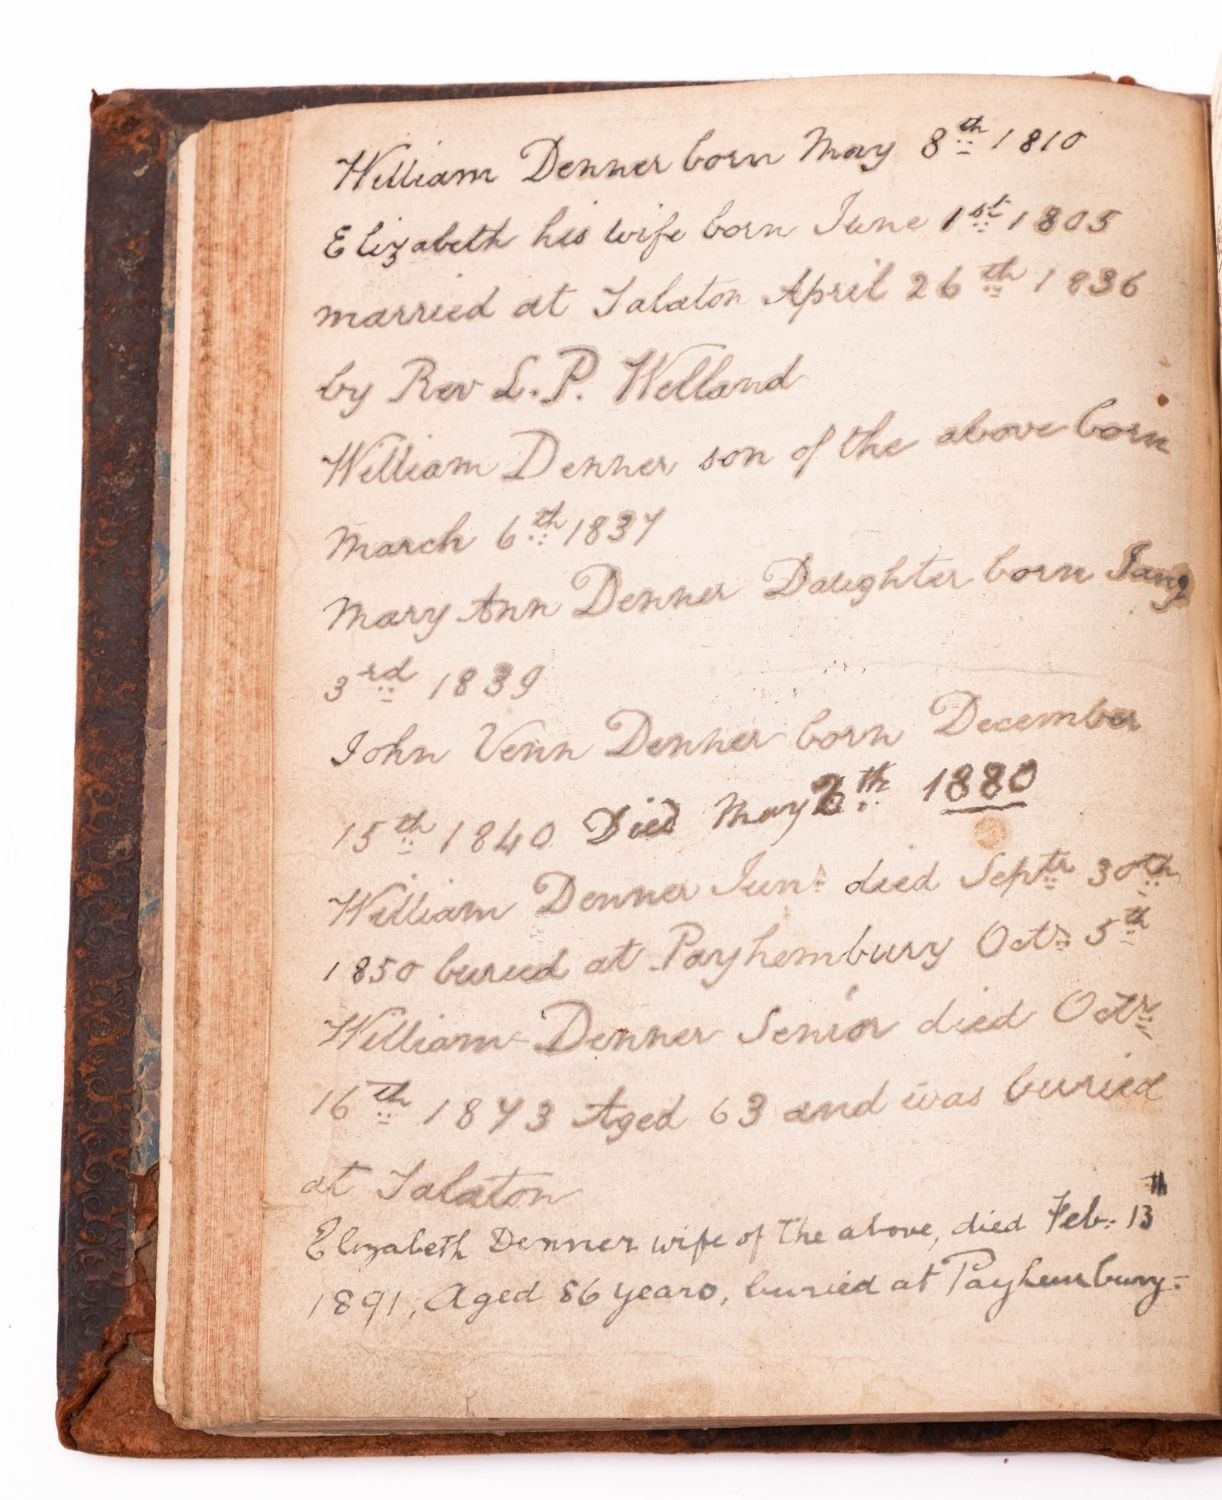 William Denner born May 8th 1810
Elizabeth his wife born June 1st 1805
married at Talaton April 26th 1836
by Rev L. P. Welland
William Denner son of the above born
March 6th 1837
Mary Ann Denner Daughter born Jany
3rd 1839
John Venn Denner born December
15th 1840 Died May th 1880
William Denner Junr died Septr 30th
1850 buried at Payhembury Octr 5th
William Denner Senior died Octr
16th 1873 Aged 63 and was buried
at Talaton
Elizabeth Denner wife of the above, died Feb: 13th
1891, Aged 86 years, buried at Payhembury-